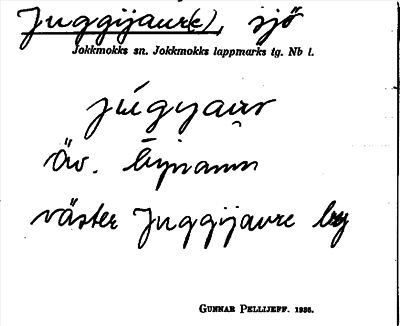 Juggijaur(e), sjö
Jokkmokks sn. Jokkmokks lappmarks tg. Nb l.
júgyaur
Öv.
väster Juggijaure by
GUNNAR PELLIJEFF. 1986.